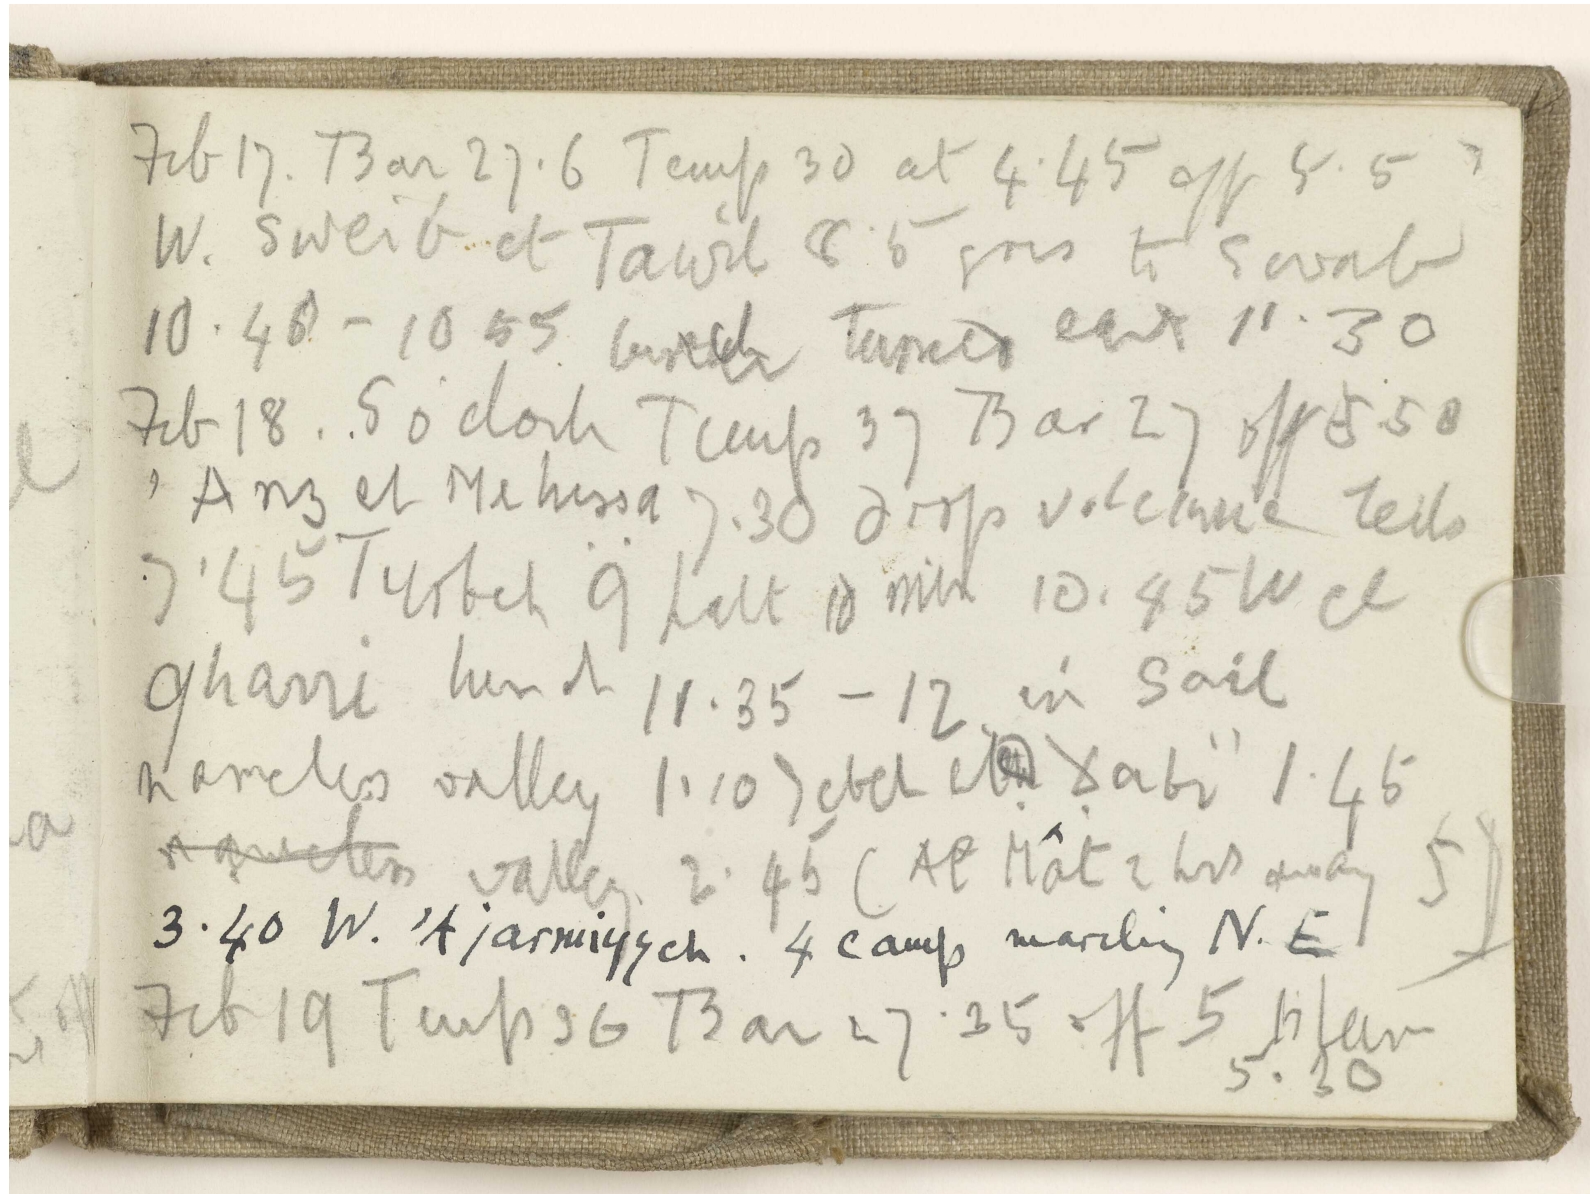 Feb 17. Bar 27.6 Temp 30 at 4.45 off 5.5
W. Sweib et Tawil 8.5 goes to Sowab
10.40 - 10 55 lunch Turned east 11.30
Feb 18. 5 o'clock Temp 37 Bar 27 off 5 50
'Anz el Mehussa 7.30 drop volcanic tells
7.45 Turbeh 9 halt 10 min 10.45 W el
gharri lunch 11.35 - 12 in Sail
nameless valley 1.10 Jebel 1.45
nameless valley 2.45 (Al Mât 2 hrs away 5)
3.40 W. 'Ajarmiyyeh. 4 camp marching N. E
Feb 19 Temp 36 Bar 27.35 off 5
5.30